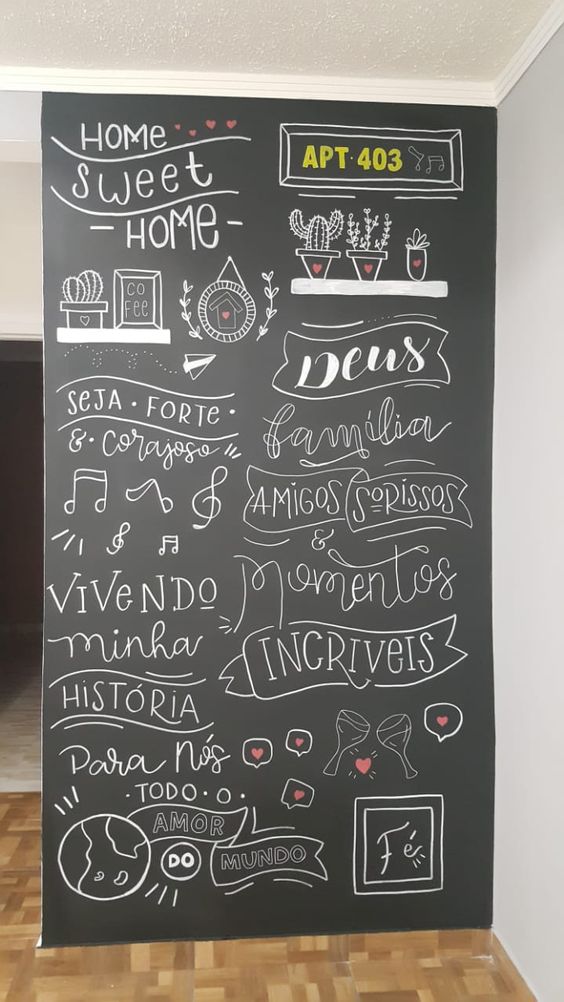 HOME
Sweet
- HOME -
COFEE
SEJA · FORTE ·
& · Corajoso
VIVENDO
minha
HISTÓRIA
Para Nós
· TODO · O ·
AMOR
DO MUNDO
APT · 403
Deus
família
AMIGOS SORISSOS
&
Momentos
INCRIVEIS
Fé